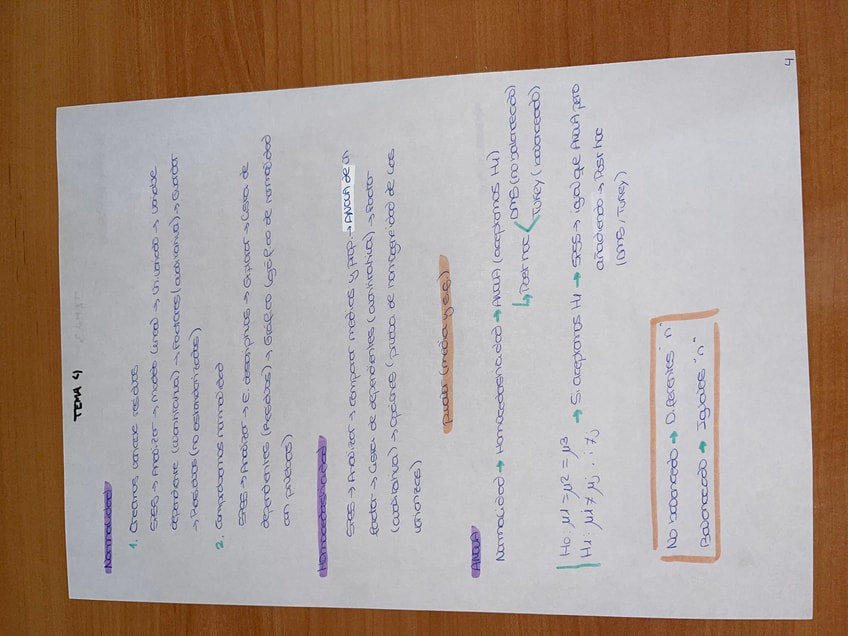 TEMA 4
Normalidad
1. Creamos variable residuos
SPSS → Analizar → Modelo lineal → Univariado → Variable
dependiente (cuantitativa) → Factores (cualitativa) → Guardar
→ Residuos (no estandarizados)
2. Comprobamos normalidad
SPSS → Analizar → E. descriptivos → Explorar → Lista de
dependientes (Residuos) → Gráficos (gráficos de normalidad
con pruebas)
Homocedasticidad
SPSS → Analizar → Comparar medias y prop. → ANOVA de un
factor → Lista de dependientes (cuantitativa) → Factor
(cualitativa) → Opciones (prueba de homogeneidad de las
varianzas)
(media y sig)
ANOVA
Normalidad → Homocedasticidad → ANOVA (aceptamos H1)
↳ Post hoc < DMS (no balanceado)
Tukey (balanceado)
H0: μ1 = μ2 = μ3
H1: μi ≠ μj : i ≠ j
→ Si aceptamos H1 → SPSS → igual que ANOVA pero
añadiendo → Post hoc
(DMS, Tukey)
No balanceado → Diferentes "n"
Balanceado → Iguales "n"
4